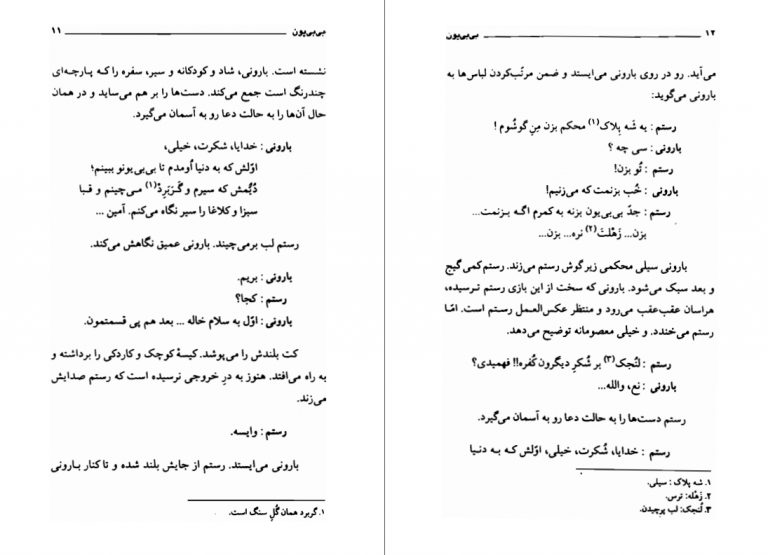 بی‌بی‌یون ۱۱
نشسته است. بارونی، شاد و کودکانه و سیر، سفره را که پارچه‌ای
چندرنگ است جمع می‌کند. دست‌ها را بر هم می‌ساید و در همان
حال آن‌ها را به حالت دعا رو به آسمان می‌گیرد.
بارونی : خدایا، شکرت، خیلی،
اوّلش که به دنیا اُومدم تا بی‌بی‌یونو ببینم؛
دُیُمش که سیرم و گَـرْبَرِدْ(۱) مـی‌چینم و قـبا
سبزا و کلاغا را سیر نگاه می‌کنم. آمین ...
رستم لب برمی‌چیند. بارونی عمیق نگاهش می‌کند.
بارونی : بریم.
رستم : کجا؟
بارونی : اوّل به سلام خاله ... بعد هم پی قسمتمون.
کت بلندش را می‌پوشد. کیسهٔ کوچک و کاردکی را برداشته و
به راه می‌افتد. هنوز به درِ خروجی نرسیده است که رستم صدایش
می‌زند.
رستم : وایسه.
بارونی می‌ایستد. رستم از جایش بلند شده و تا کنار بـارونی
۱. گربرد همان گُلِ سنگ است.
۱۲ بی‌بی‌یون
می‌آید. رو در روی بارونی می‌ایستد و ضمن مرتّب‌کردن لباس‌ها به
بارونی می‌گوید:
رستم : یه شَه پِلاک(۱) محکم بزن مِنِ گوشُوم !
بارونی : سی چه ؟
رستم : تُو بزن!
بارونی : خُب بزنمت که می‌زنیم!
رستم : جدّ بی‌بی‌یون بزنه به کمرم اگـه بـزنمت...
بزن... زَهْلَتْ(۲) نره... بزن...
بارونی سیلی محکمی زیر گوش رستم می‌زند. رستم کمی گیج
و بعد سبک می‌شود. بارونی که سخت از این بازی رستم ترسیده،
هراسان عقب‌عقب می‌رود و منتظر عکس‌العمل رستم است. امّا
رستم می‌خندد. و خیلی معصومانه توضیح می‌دهد.
رستم : لُنْجک(۳) بر شُکرِ دیگرون کُفره!! فهمیدی؟
بارونی : نع، والله...
رستم دست‌ها را به حالت دعا رو به آسمان می‌گیرد.
رستم : خدایا، شُکرت، خیلی، اوّلش کـه بـه دنـیا
۱. شه پلاک : سیلی.
۲. زَهْله: ترس.
۳. لُنجک: لب پرچیدن.